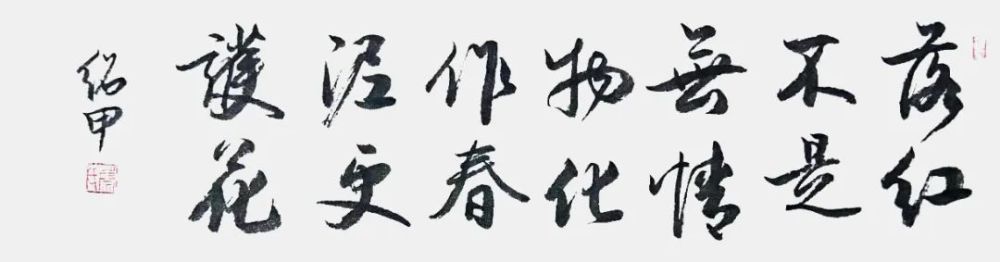 落红
不是
無情
物化
作春
泥更
護花
紹甲